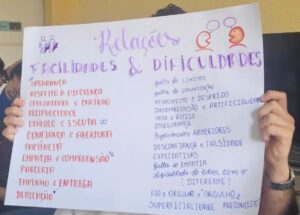 Relações
FACILIDADES & DIFICULDADES
SEGURANÇA
RESPEITO A DIFERENÇA
RECIPROCIDADE
DIÁLOGO E ESCUTA
CONFIANÇA E ABERTURA
PACIÊNCIA
EMPATIA E COMPREENSÃO
PARCERIA
EMPENHO E ENTREGA
DEDICAÇÃO
falta de
falta de comunicação
DESRESPEITO E DESPREZO
INCOMPREENSÃO E ARTIFICIALIDADE
MEDO E RECEIO
INSEGURANÇA
Experiências ANTERIORES
DESCONFIANÇA E FALSIDADE
EXPECTATIVAS
falta de EMPATIA
dificuldade de lidar com o
(DIFERENTE)
EGO E ORGULHO E ORGULHO
SUPERFICIALIDADE PRECONCEITO